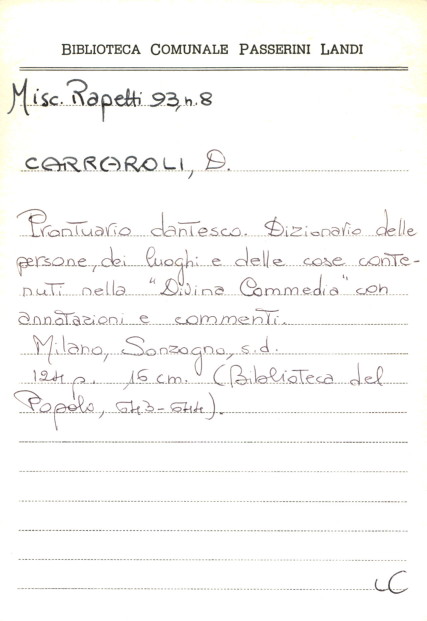 BIBLIOTECA COMUNALE PASSERINI LANDI
Misc. Rapetti 93, n. 8
CARRAROLI, D.
Prontuario dantesco. Dizionario delle
persone, dei luoghi e delle cose conte-
nuti nella "Divina Commedia" con
annotazioni e commenti.
Milano, Sonzogno, s.d.
124 p. 15 cm. (Biblioteca del
Popolo, 643-644).
LC